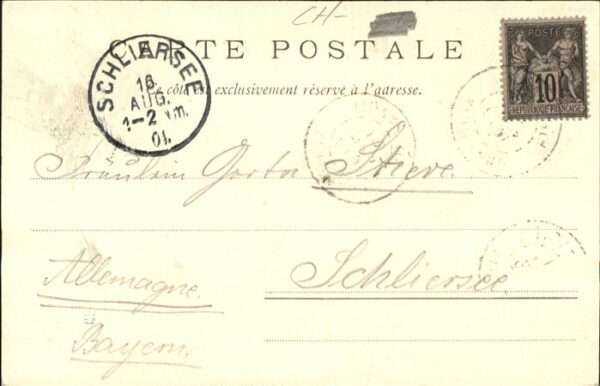 CH-
CARTE POSTALE
Ce côté est exclusivement réservé à l'adresse.
POSTE
10
RÉPUBLIQUE FRANÇAISE
SCHLIERSEE
16.
AUG.
1-2 Nm.
01.
Fräulein
Schliersee.
Allemagne.
Bayern.